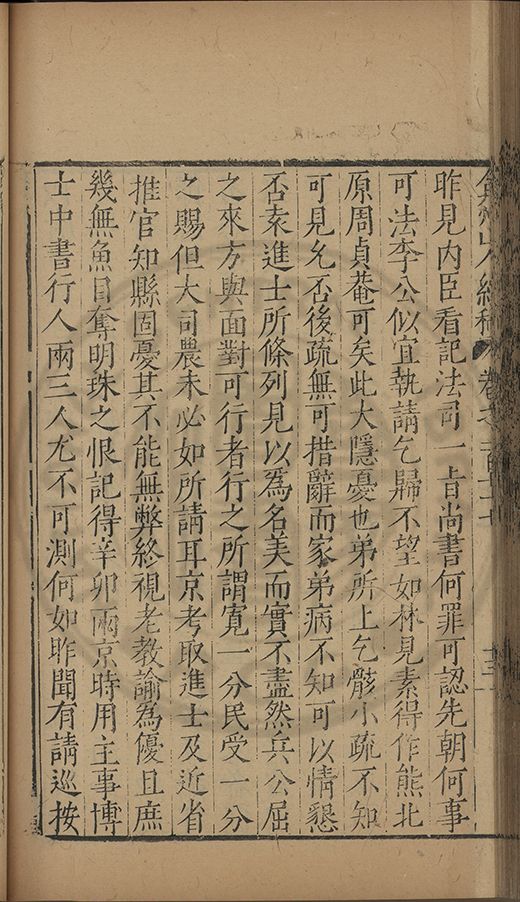 弇州山人續稿 卷之一百二十 十三
昨見內臣看記法司一旨尚書何罪可認先朝何事
可法李公似宜執請乞歸不望如林見素得作熊北
原周貞菴可矣此大隱憂也弟所上乞骸小疏不知
可見允否後疏無可措辭而家弟病不知可以情懇
否袁進士所條列見以為名美而實不盡然兵公屈
之來方與面對可行者行之所謂寬一分民受一分
之賜但大司農未必如所請耳京考取進士及近省
推官知縣固憂其不能無弊終視老教諭為優且庶
幾無魚目奪明珠之恨記得辛卯兩京時用主事博
士中書行人兩三人尤不可測何如昨聞有請巡按